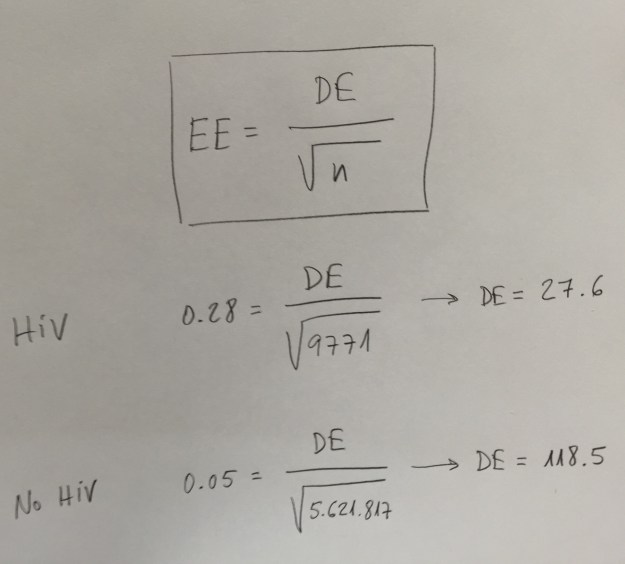 EE = DE / √n
HiV 0.28 = DE / √9771 → DE = 27.6
No HiV 0.05 = DE / √5.621.817 → DE = 118.5